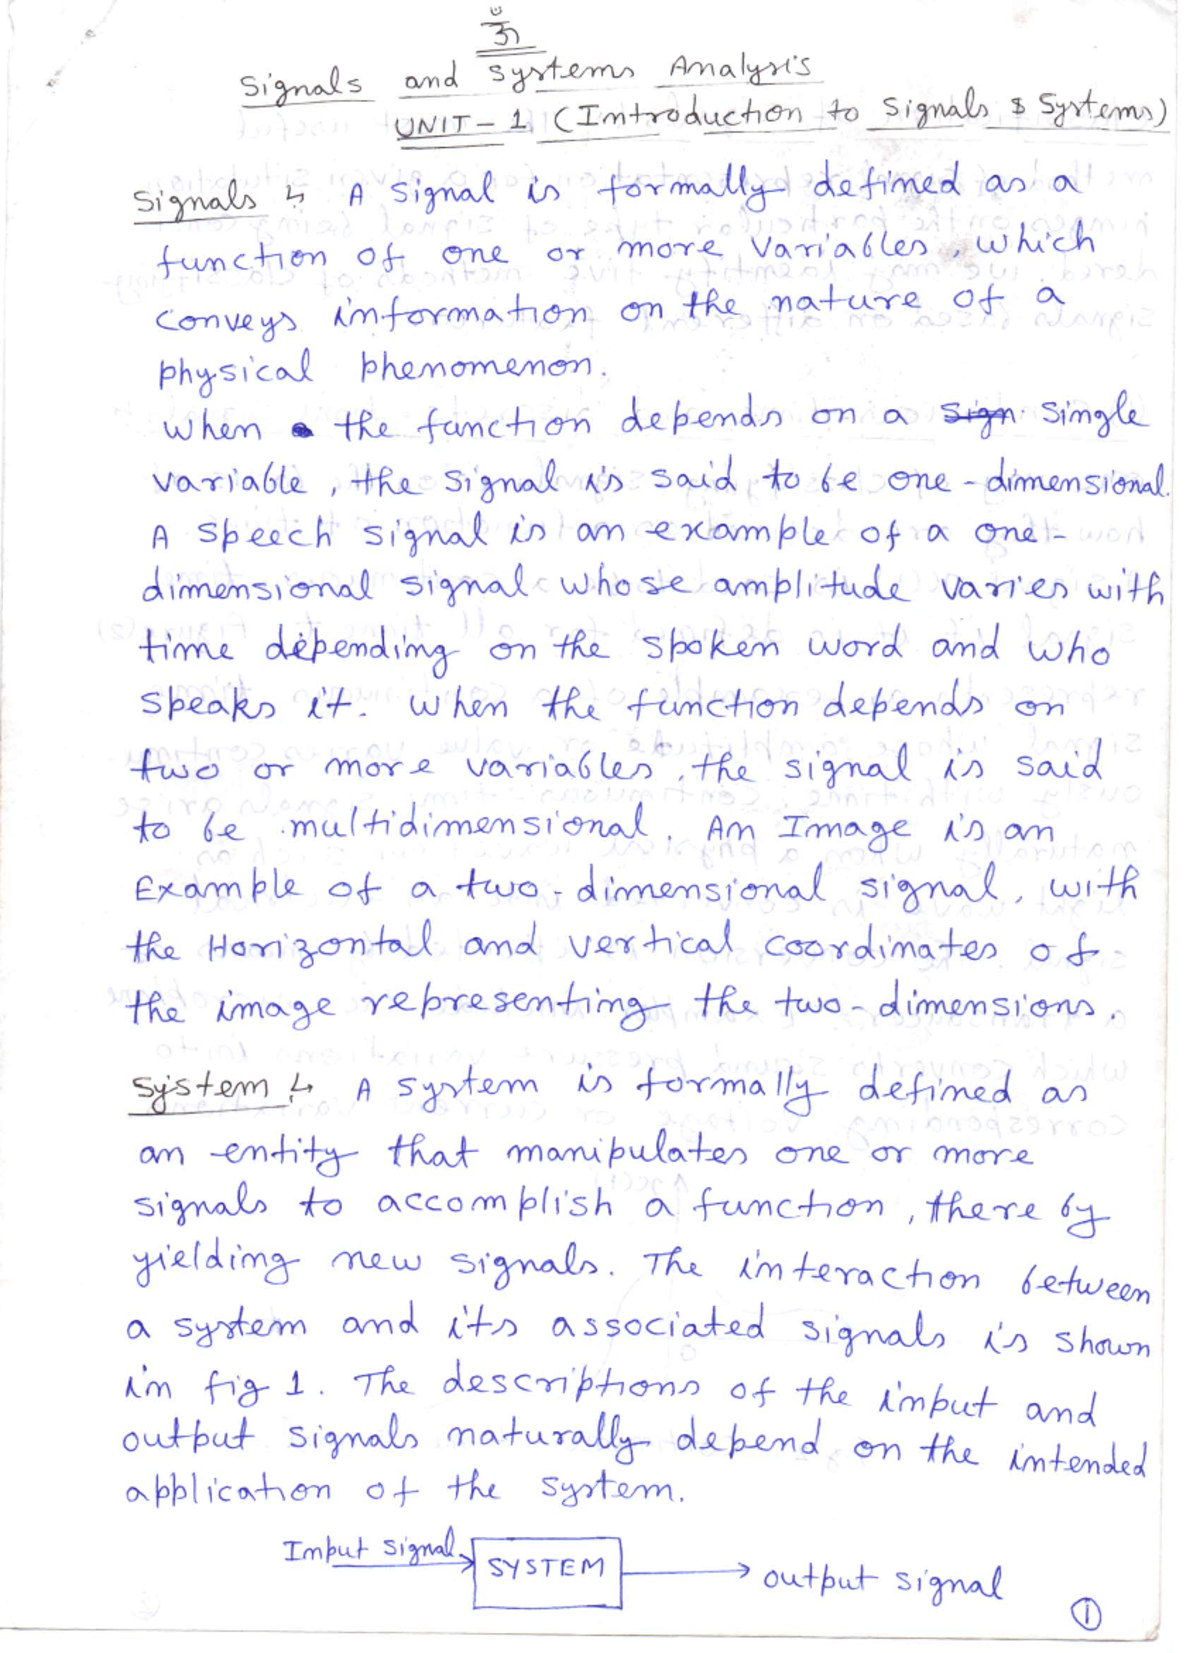 ॐ
Signals and Systems Analysis
UNIT-1 (Introduction to Signals & Systems)
Signals ↳ A signal is formally defined as a
function of one or more variables, which
conveys information on the nature of a
physical phenomenon.
When the function depends on a sign single
variable, the signal is said to be one-dimensional.
A speech signal is an example of a one-
dimensional signal whose amplitude varies with
time depending on the spoken word and who
speaks it. When the function depends on
two or more variables, the signal is said
to be multidimensional. An Image is an
Example of a two-dimensional signal, with
the Horizontal and vertical coordinates of
the image representing the two-dimensions.
System ↳ A system is formally defined as
an entity that manipulates one or more
signals to accomplish a function, there by
yielding new signals. The interaction between
a system and its associated signals is shown
in fig 1. The descriptions of the input and
output signals naturally depend on the intended
application of the system.
Input signal
SYSTEM
output signal
1